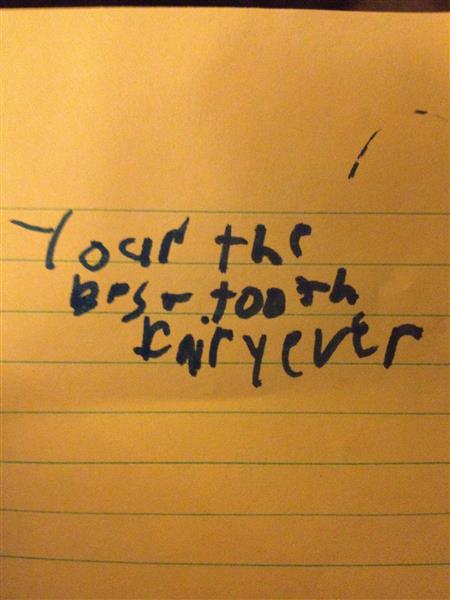 Your the
best tooth
Fairy ever